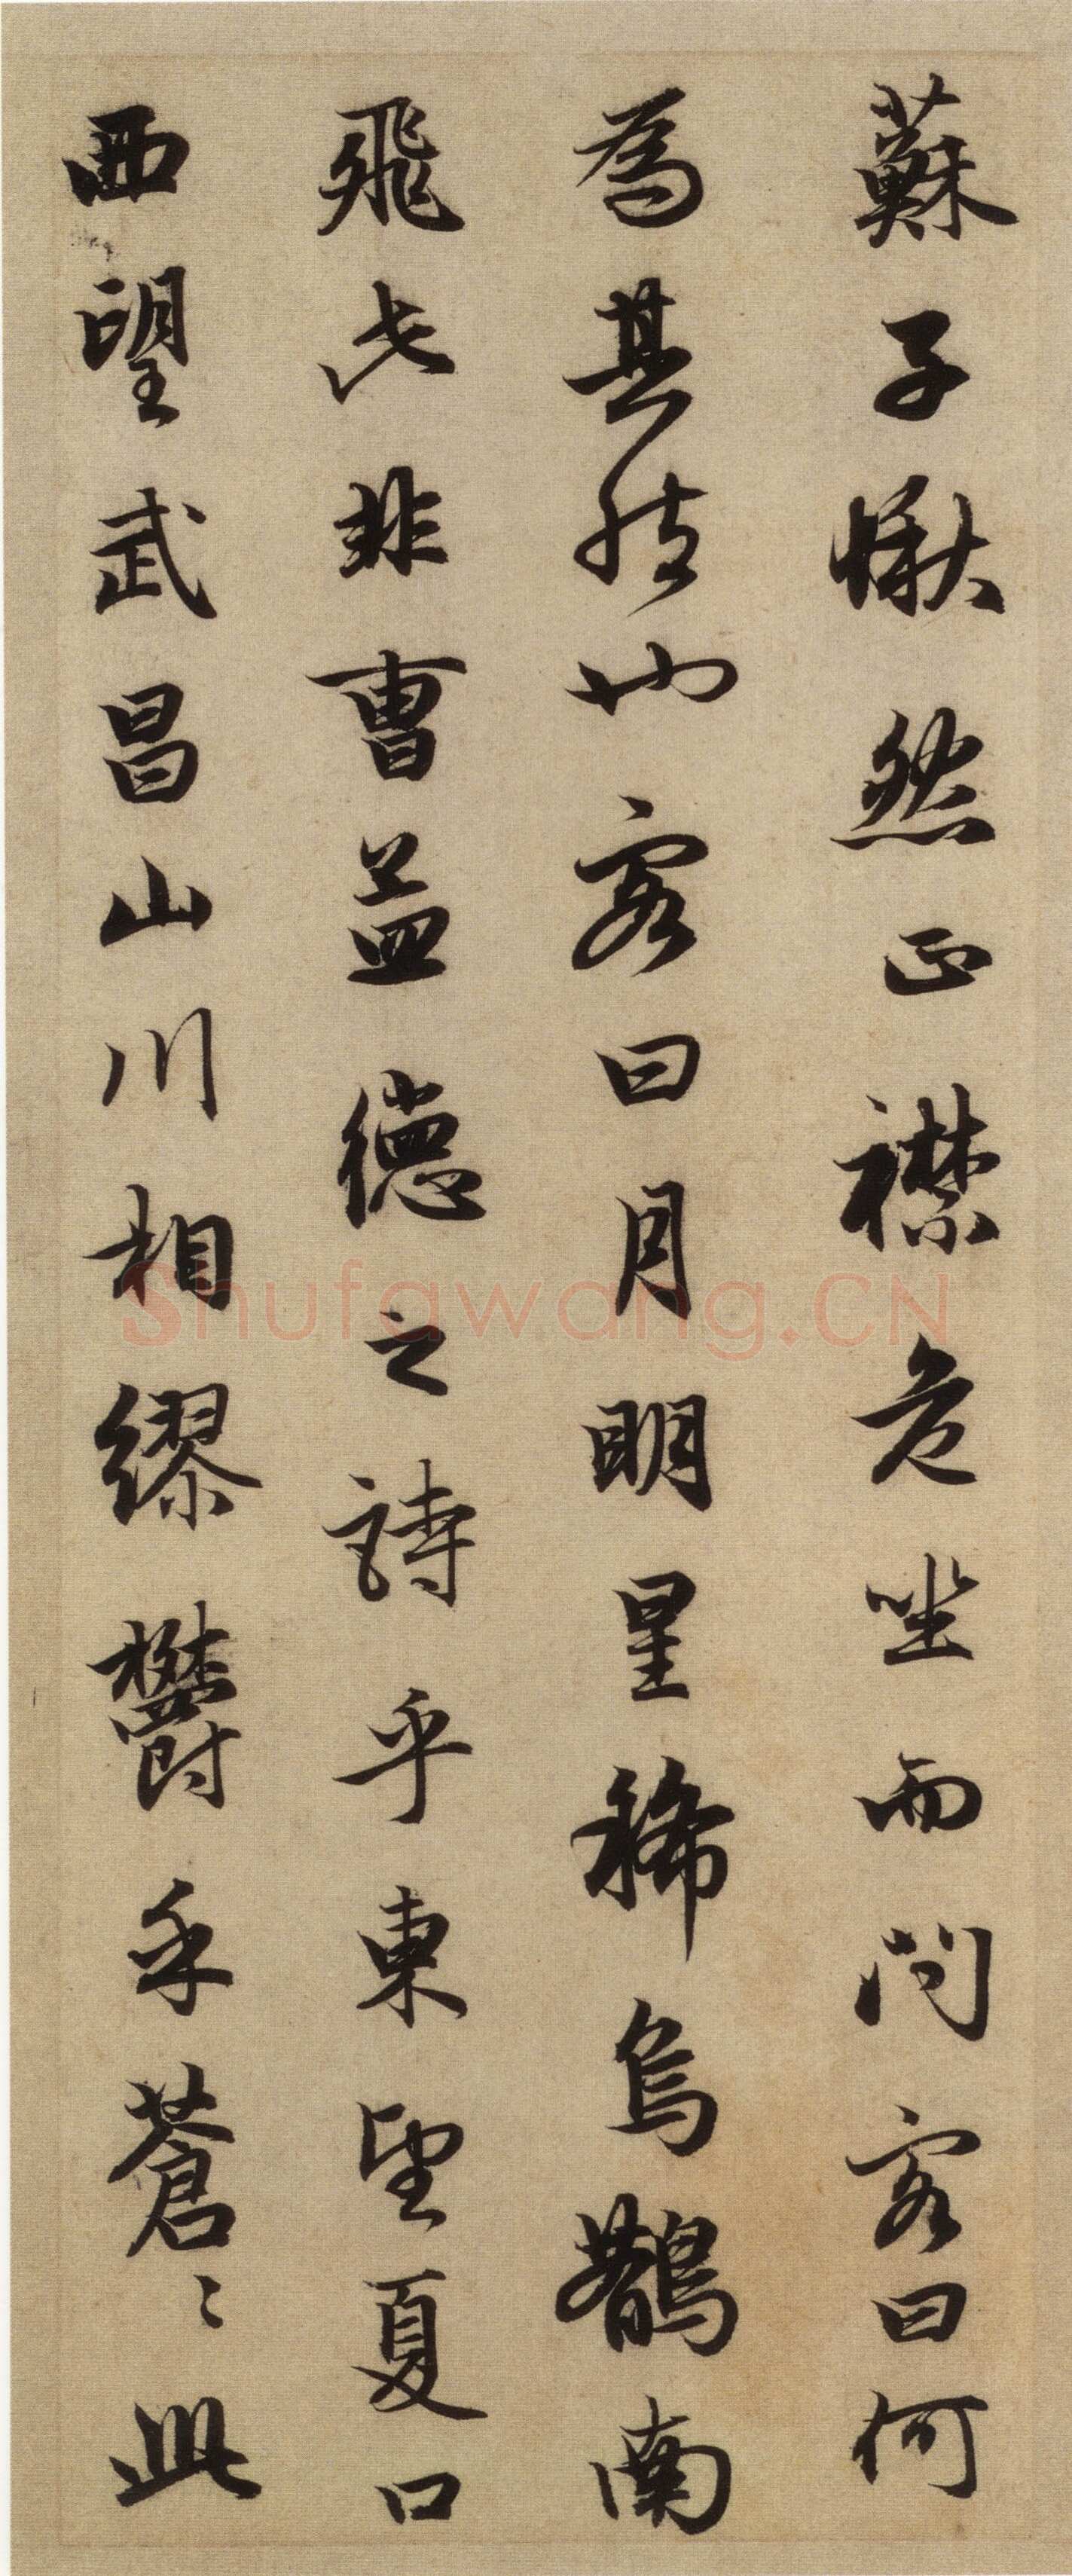 蘇子愀然正襟危坐而問客曰何
為其然也客曰月明星稀烏鵲南
飛此非曹孟德之詩乎東望夏口
西望武昌山川相繆鬱乎蒼〻此
Shufawang.CN